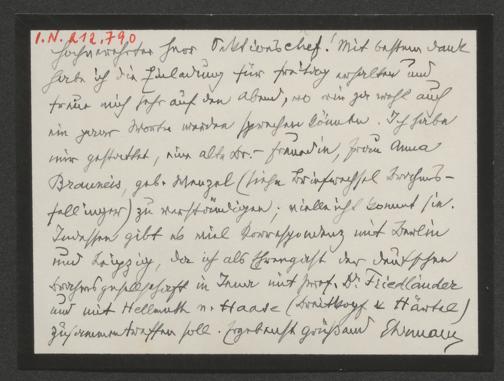 I.N. 212.790
Hochverehrter Herr Sektionschef! Mit bestem Dank
habe ich die Einladung für Freitag erhalten und
freue mich sehr auf den Abend, wo wir ja wohl auch
ein paar Worte werden sprechen können. Ich habe
mir gestattet, eine alte Br.-Freundin, Frau Anna
Brauneis, geb. Menzel (siehe Briefwechsel Brahms-
Fellinger) zu verständigen; vielleicht kommt sie.
Indessen gibt es viel Korrespondenz mit Berlin
und Leipzig, da ich als Ehrengast der deutschen
Brahmsgesellschaft in Jena mit Prof. Dr. Friedländer
und mit Hellmuth v. Haase (Breitkopf & Härtel)
zusammentreffen soll. Ergebenst grüßend Ehrmann